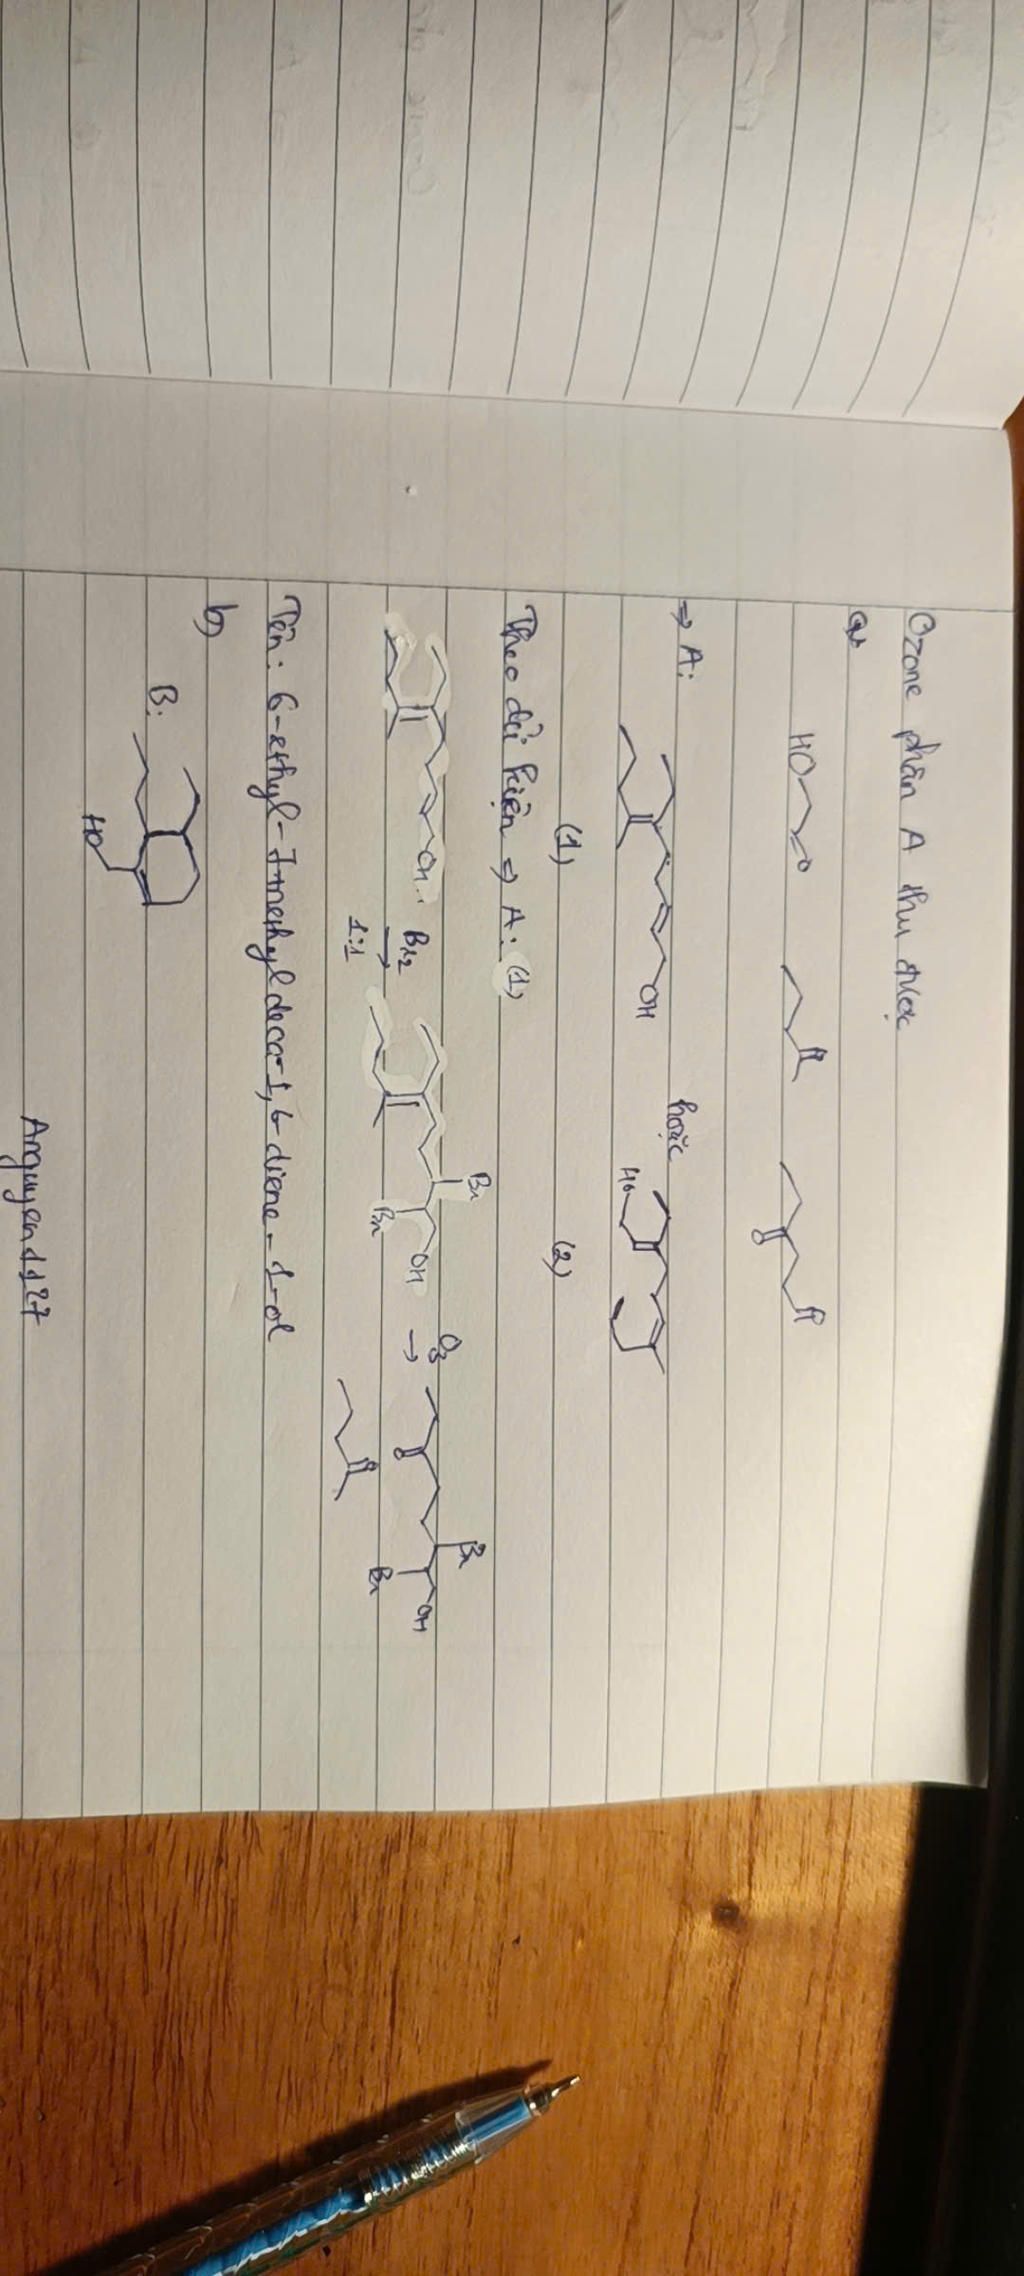 Ozone phân A thu được
a,
HO O O O O
=> A: OH hoặc HO
(1) (2)
Theo dữ kiện => A: (1)
OH Br2 1:1 Br Br OH O3 O Br Br OH O
Tên: 6-ethyl-7-methyl deca-1,6-diene-1-ol
b,
B: HO
Anguyen1127